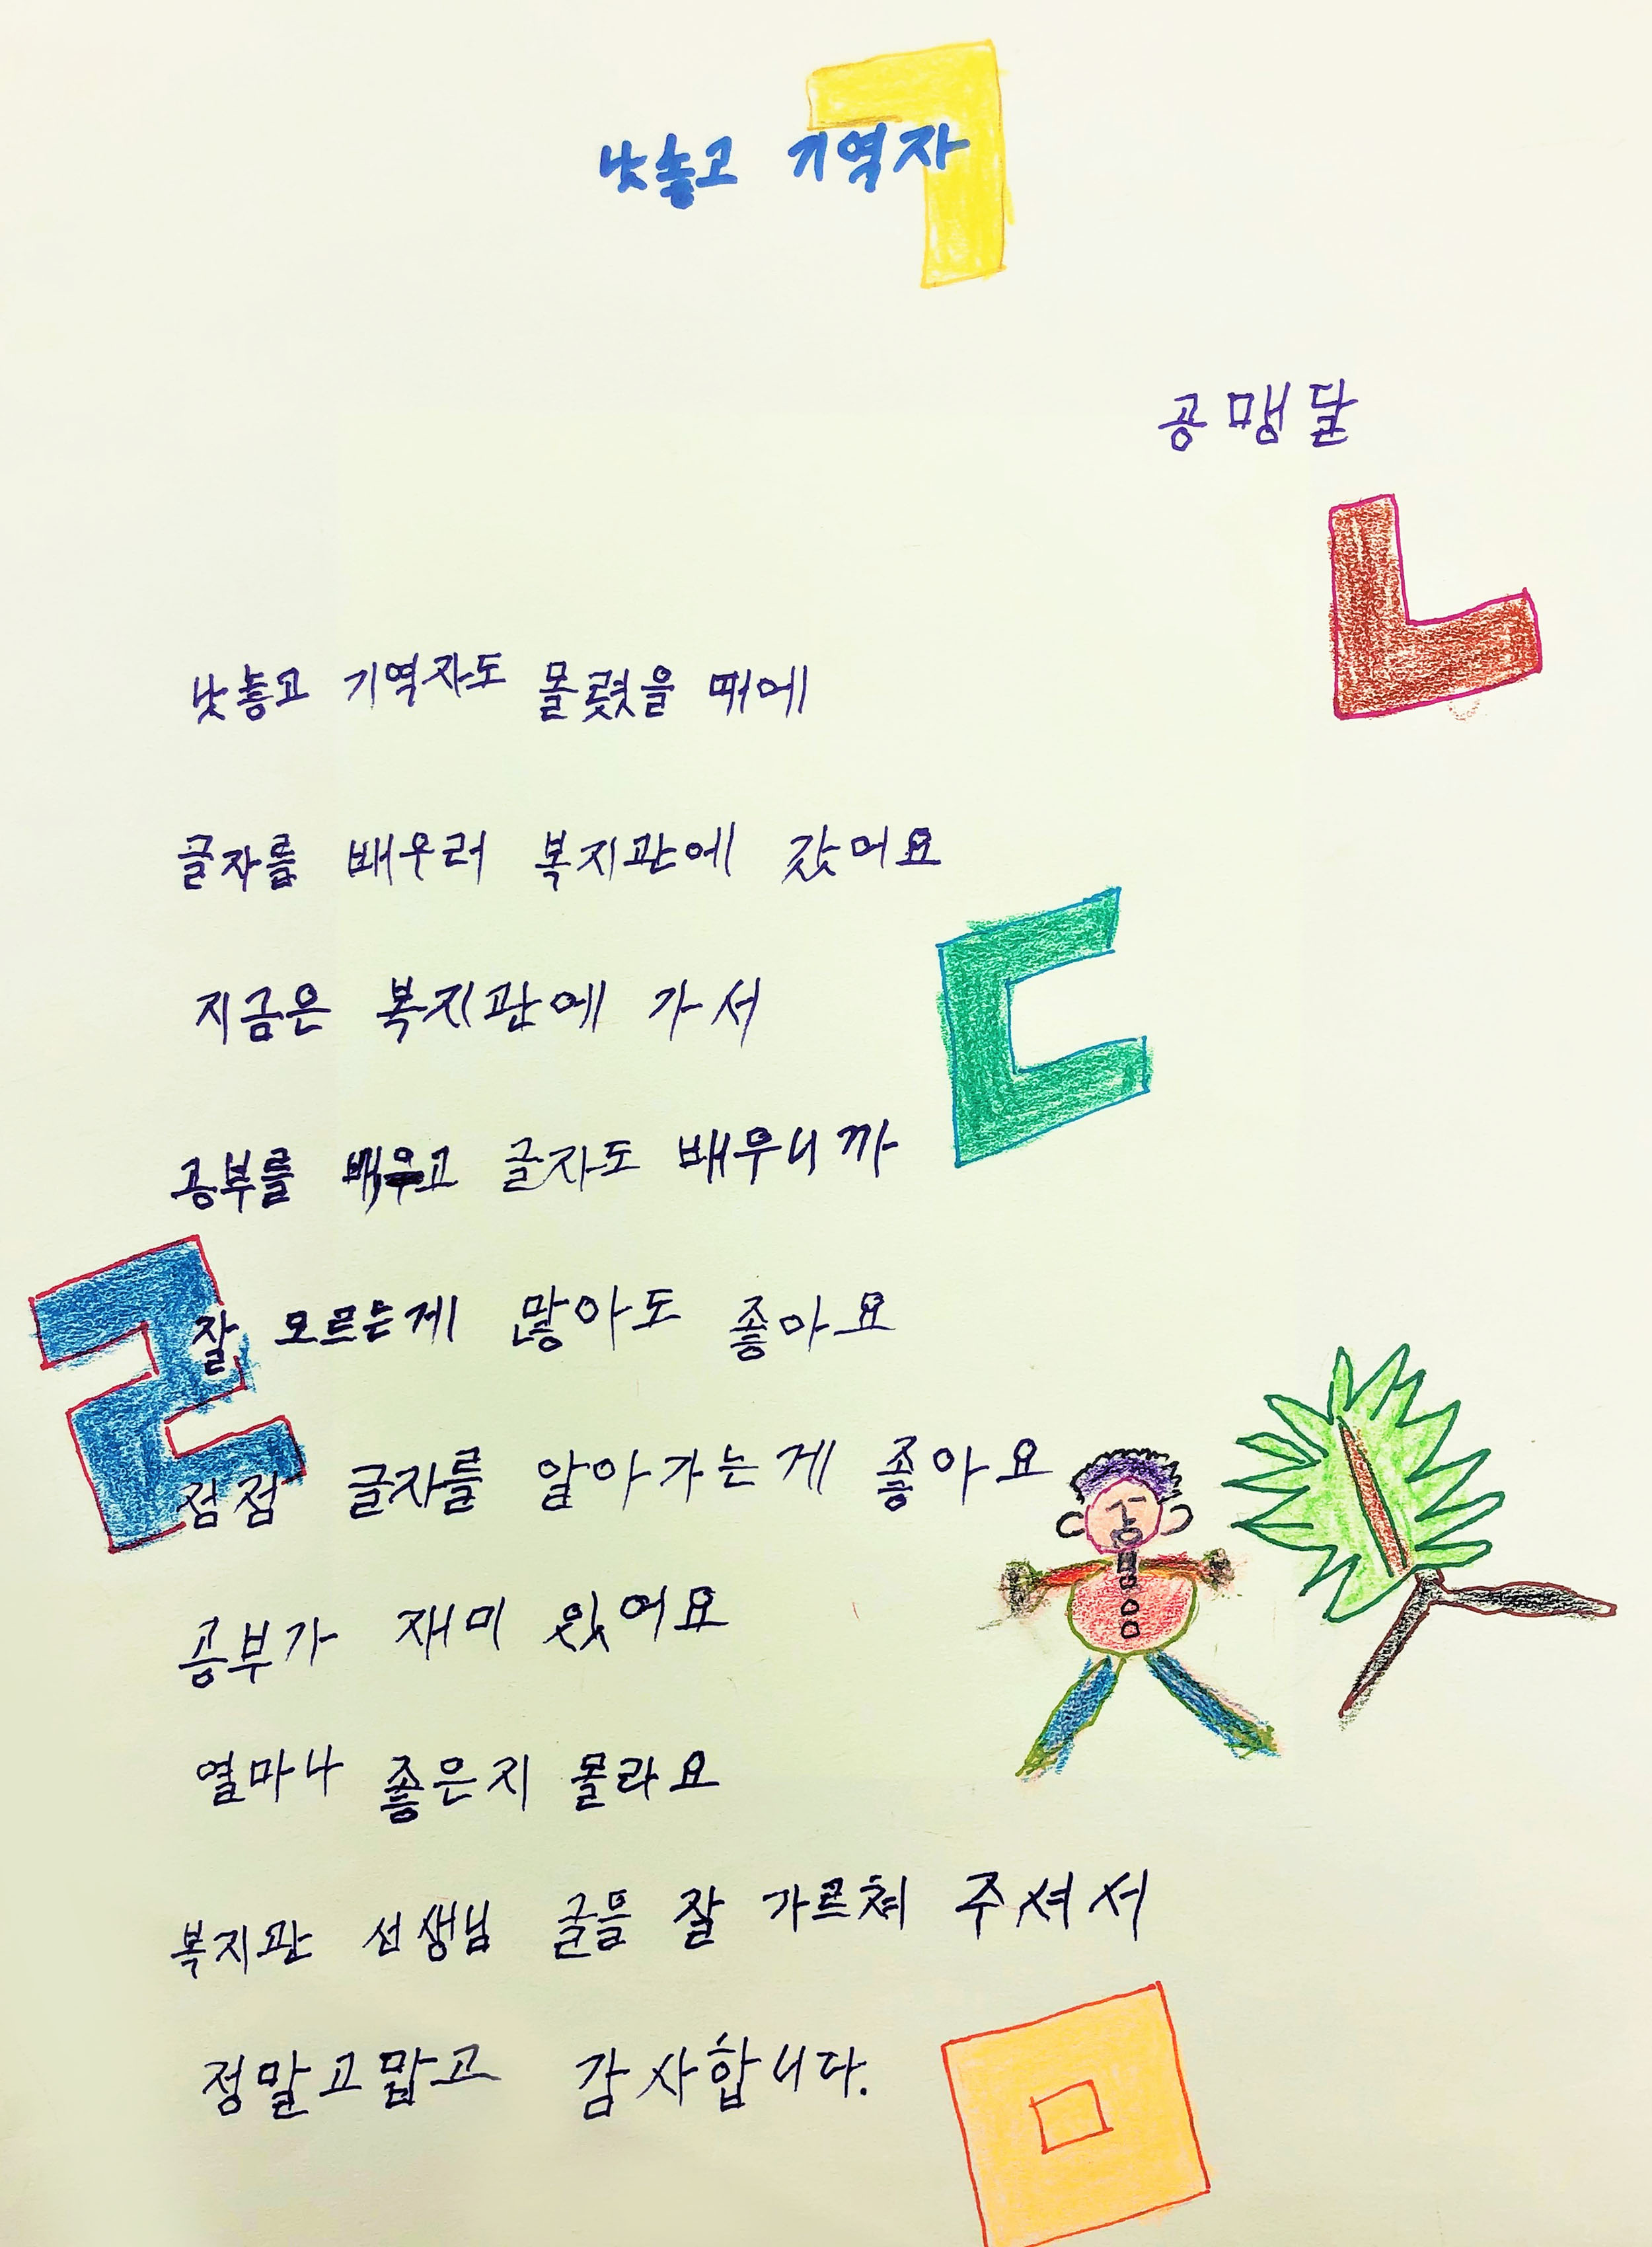 낫놓고 기역자
공맹달
낫놓고 기역자도 몰렀을 때에
글자를 배우러 복지관에 갔어요
지금은 복지관에 가서
공부를 배우고 글자도 배우니까
잘 모르는게 많아도 좋아요
점점 글자를 알아가는게 좋아요
공부가 재미 있어요
열마나 좋은지 몰라요
복지관 선생님 글을 잘 가르쳐 주셔서
정말고맙고 감사합니다.